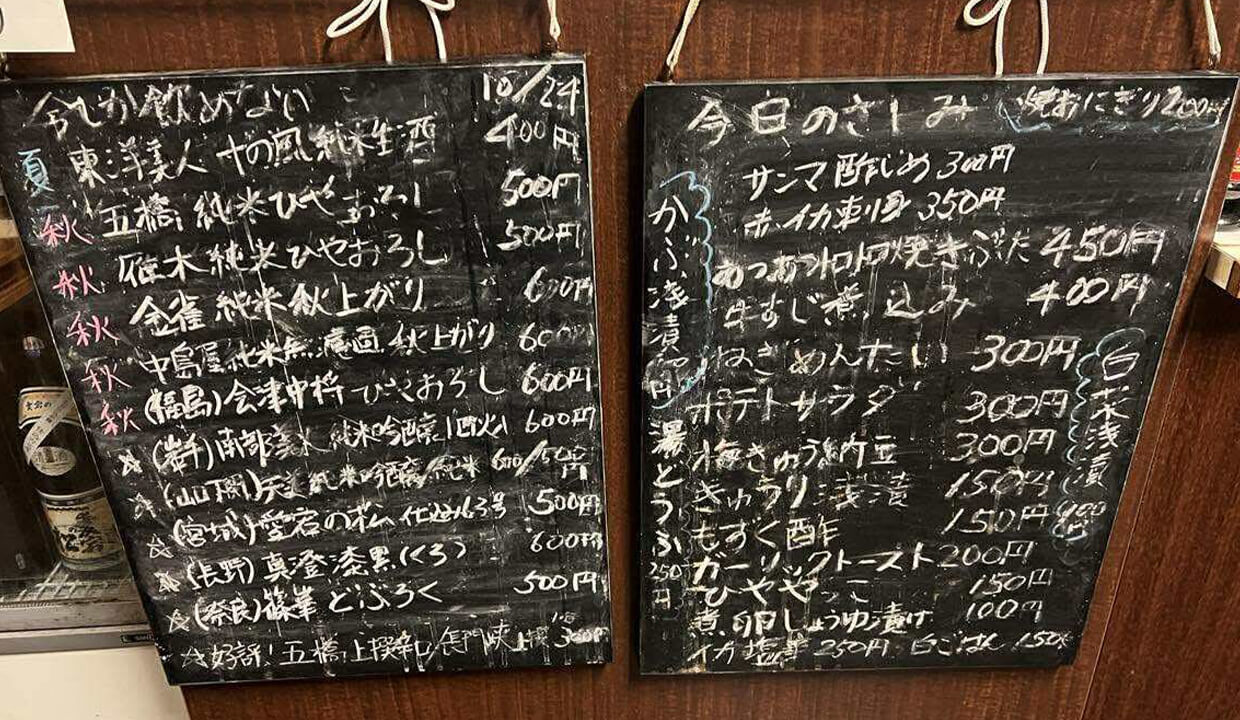 今しか飲めない 10/24
夏 東洋美人 十の風 純米生酒 400円
秋 五橋 純米ひやおろし 500円
秋 雁木 純米ひやおろし 500円
秋 金雀 純米秋上がり 600円
秋 中島屋 純米無濾過 秋上がり 600円
秋 (福島)会津中将 ひやおろし 600円
☆(岩手)南部美人 純米吟醸 1回火入 600円
☆(山口)天美 純米吟醸/純米 600/500円
☆(宮城)愛宕の松 仕込み63号 500円
☆(長野)真澄 漆黒(くろ) 600円
☆(奈良)篠峯 どぶろく 500円
☆好評! 五橋上撰 長門峡上撰 300円
今日のさしみ
焼おにぎり200円
サンマ酢じめ 300円
赤イカ刺 350円
あつあつトロトロ焼きぶた 450円
牛すじ煮込み 400円
ねぎめんたい 300円
ポテトサラダ 300円
梅きゅう納豆 300円
きゅうり浅漬 150円
もずく酢 150円
ガーリックトースト 200円
ひややっこ 150円
煮卵しょうゆ漬け 100円
イカ塩辛 250円 白ごはん 150
かぶ浅漬
湯どうふ 250円
白菜浅漬